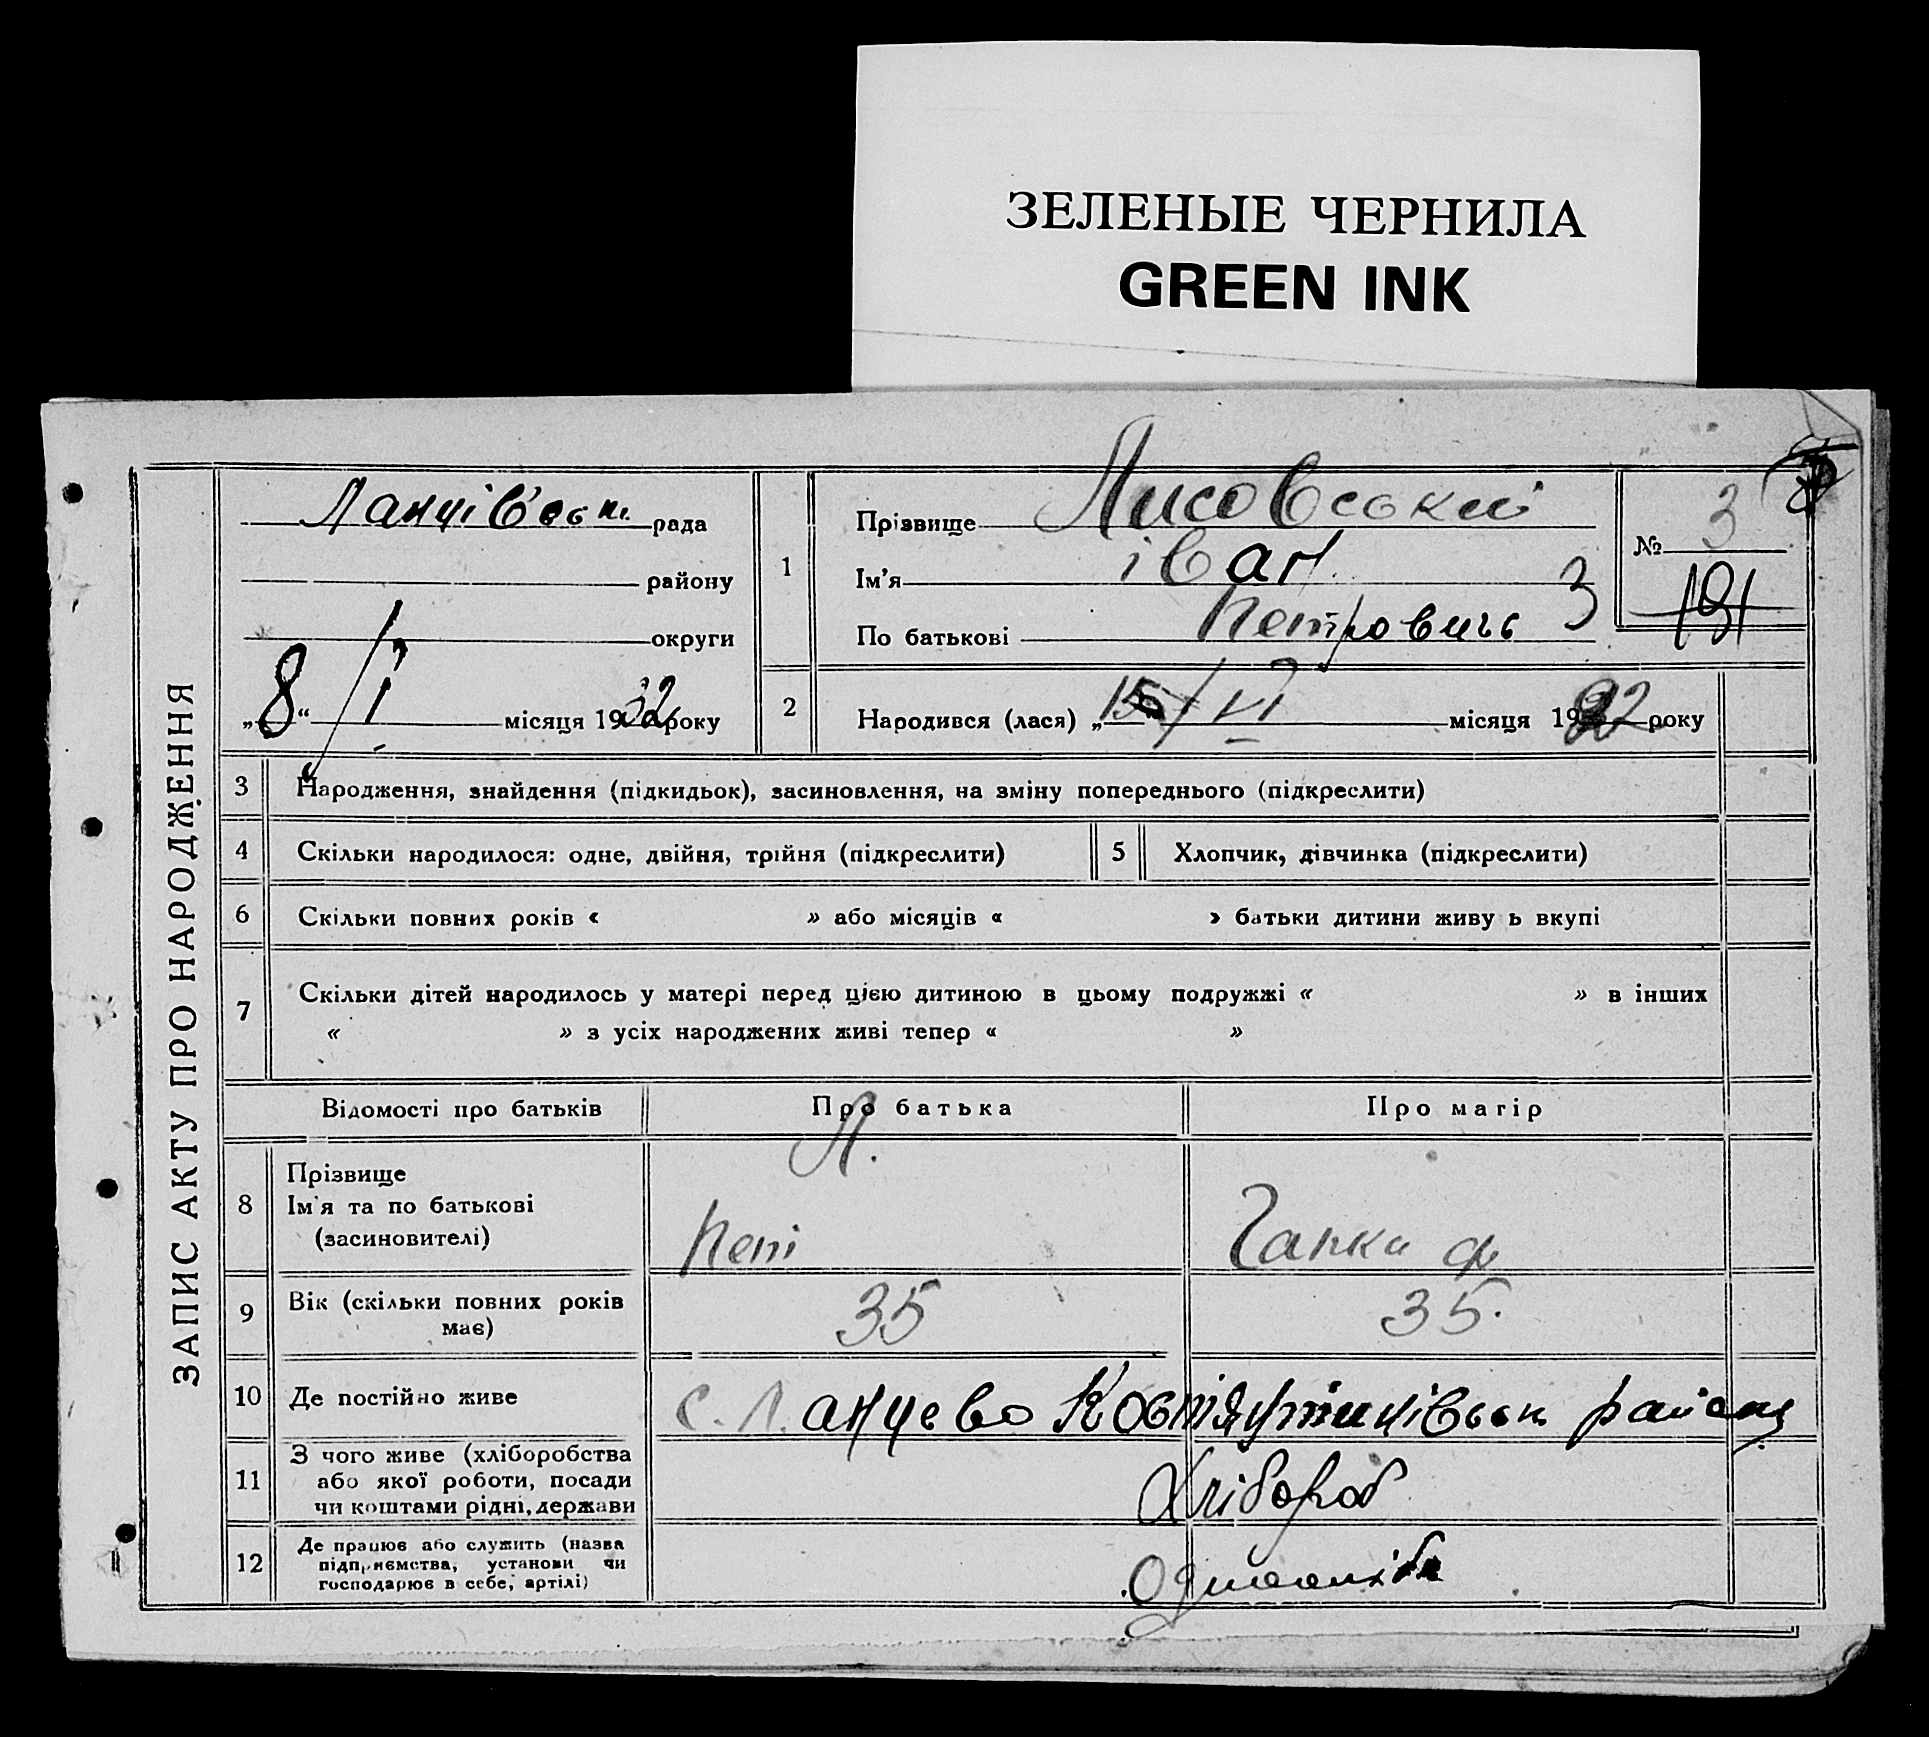 ЗЕЛЕНЫЕ ЧЕРНИЛА
GREEN INK
ЗАПИС АКТУ ПРО НАРОДЖЕННЯ
Ланцівськ. рада
району
округи
„8“ / I місяця 1932 року
1
Прізвище Лисовський
Ім'я іван
По батькові Петровичь 3
№ 3
191
2
Народився (лася) „15 / VI місяця 19 року
3 Народження, знайдення (підкидьок), засиновлення, на зміну попереднього (підкреслити)
4 Скільки народилося: одне, двійня, трійня (підкреслити) 5 Хлопчик, дівчинка (підкреслити)
6 Скільки повних років « » або місяців « » батьки дитини живу ь вкупі
7 Скільки дітей народилось у матері перед цією дитиною в цьому подружжі « » в інших
« » з усіх народжених живі тепер « »
Відомості про батьків Про батька Про матір
8 Прізвище
Ім'я та по батькові
(засиновителі)
Л.
Пет
Гапка ф
9 Вік (скільки повних років
має)
35 35.
10 Де постійно живе с. Ланцево Костянтинівськ району
11 З чого живе (хліборобства
або якої роботи, посади
чи коштами рідні, держави
Хлібороб
12 Де працює або служить (назва
підприємства, установи чи
господарює в себе, артілі)